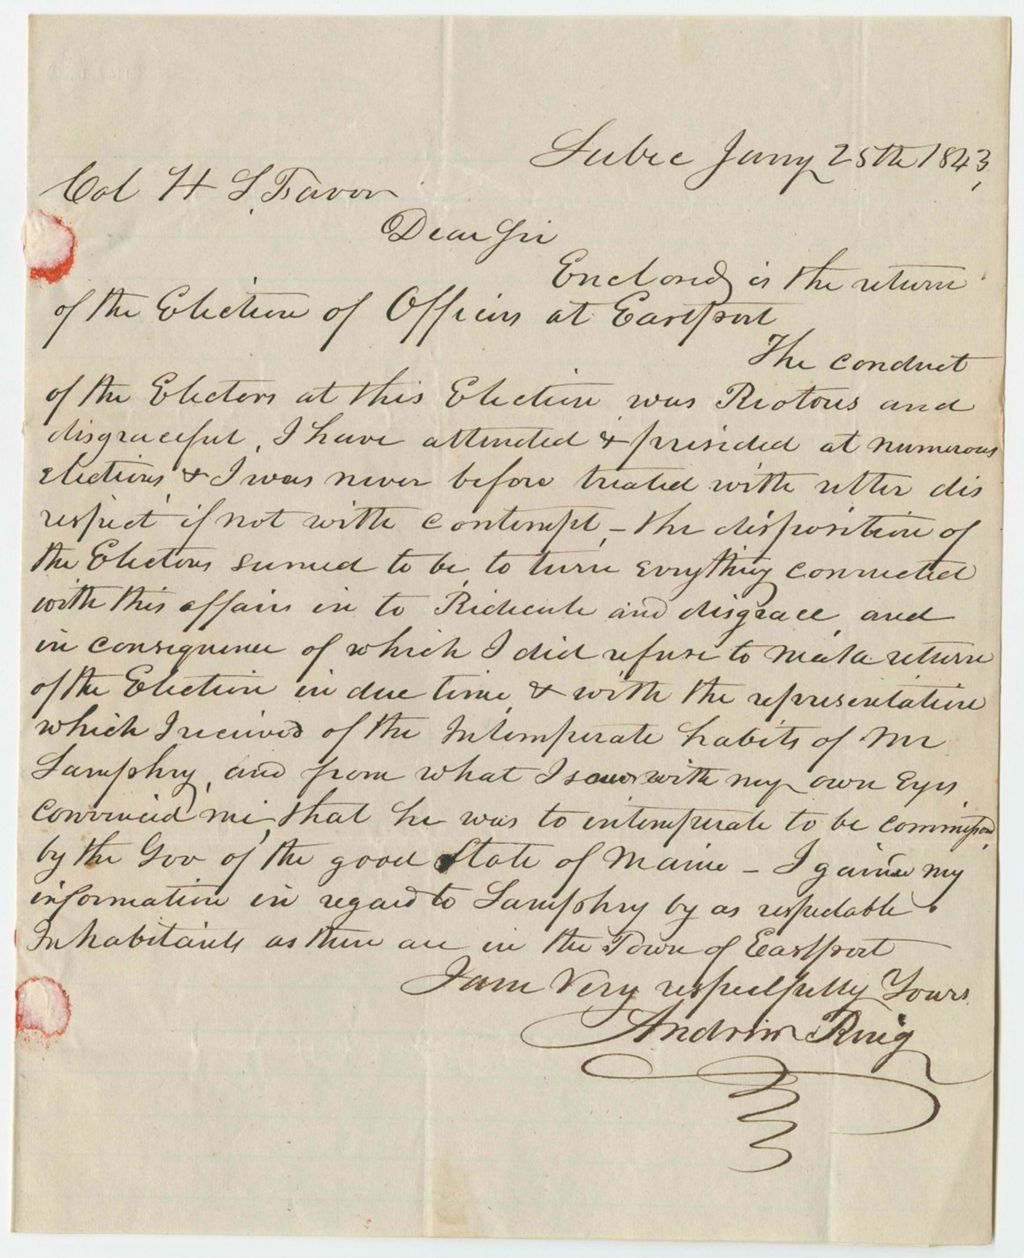 Lubec Jany 25th 1843,
Col H L Favor
Dear Sir
Enclosed is the return
of the Election of Officers at Eastport
The conduct
of the Electors at this Election was Riotous and
disgraceful, I have attended & presided at numerous
elections & I was never before treated with utter dis
respect if not with contempt, – the disposition of
the Electors seemed to be to turn evrything connected
with this affair in to Ridicule and disgrace, and
in consequence of which I did refuse to make return
of the Election in due time, & with the representation
which I received of the Intemperate habits of Mr
Lamphry, and from what I saw with my own Eyes
convinced me, that he was to intemperate to be commission
by the Gov of the good State of Maine – I gained my
information in regard to Lamphry by as respectable
Inhabitants as there are in the Town of Eastport
I am Very respectfully Yours
Andrew